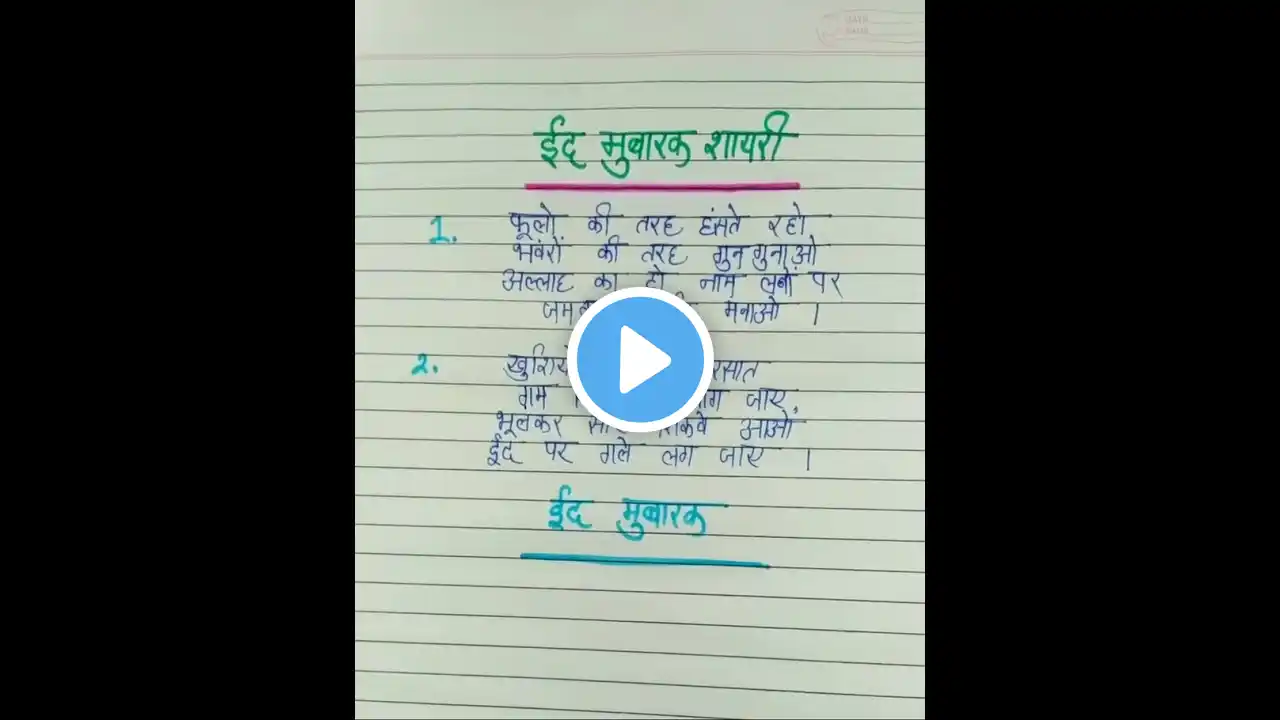 DATE
ईद मुबारक शायरी
1. फूलो की तरह हंसते रहो
भवंरों की तरह गुनगुनाओ
अल्लाह का हो नाम लबों पर
मनाओ ।
2.
ग़म जाए,
भूलकर आओ
ईद पर गले लग जाए ।
ईद मुबारक